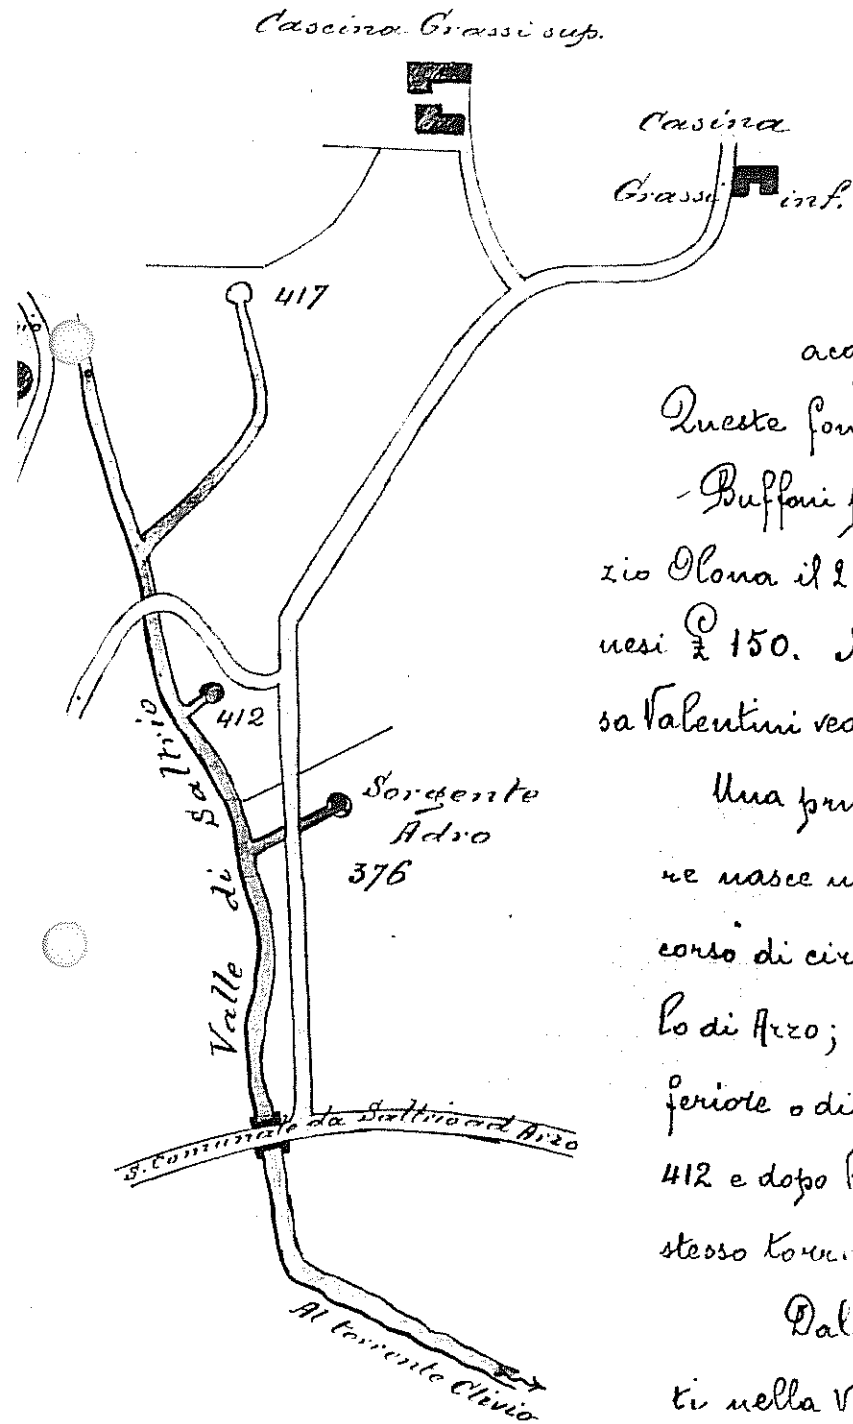 Cascina Grassi sup.
Casina
Grassi inf.
417
412
Sorgente
Adro
376
Valle di Saltrio
S. Comunale da Saltrio ad Arzo
Al torrente Clivio
Queste
- Buffoni
zio Olona il 2
nesi £ 150.
sa Valentini
Una
re nasce
corso di
lo di Arzo;
feriore o di
412 e dopo
stesso
Dal
ti nella V